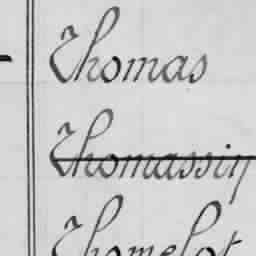 Thomas
Thomassin
Thomelot